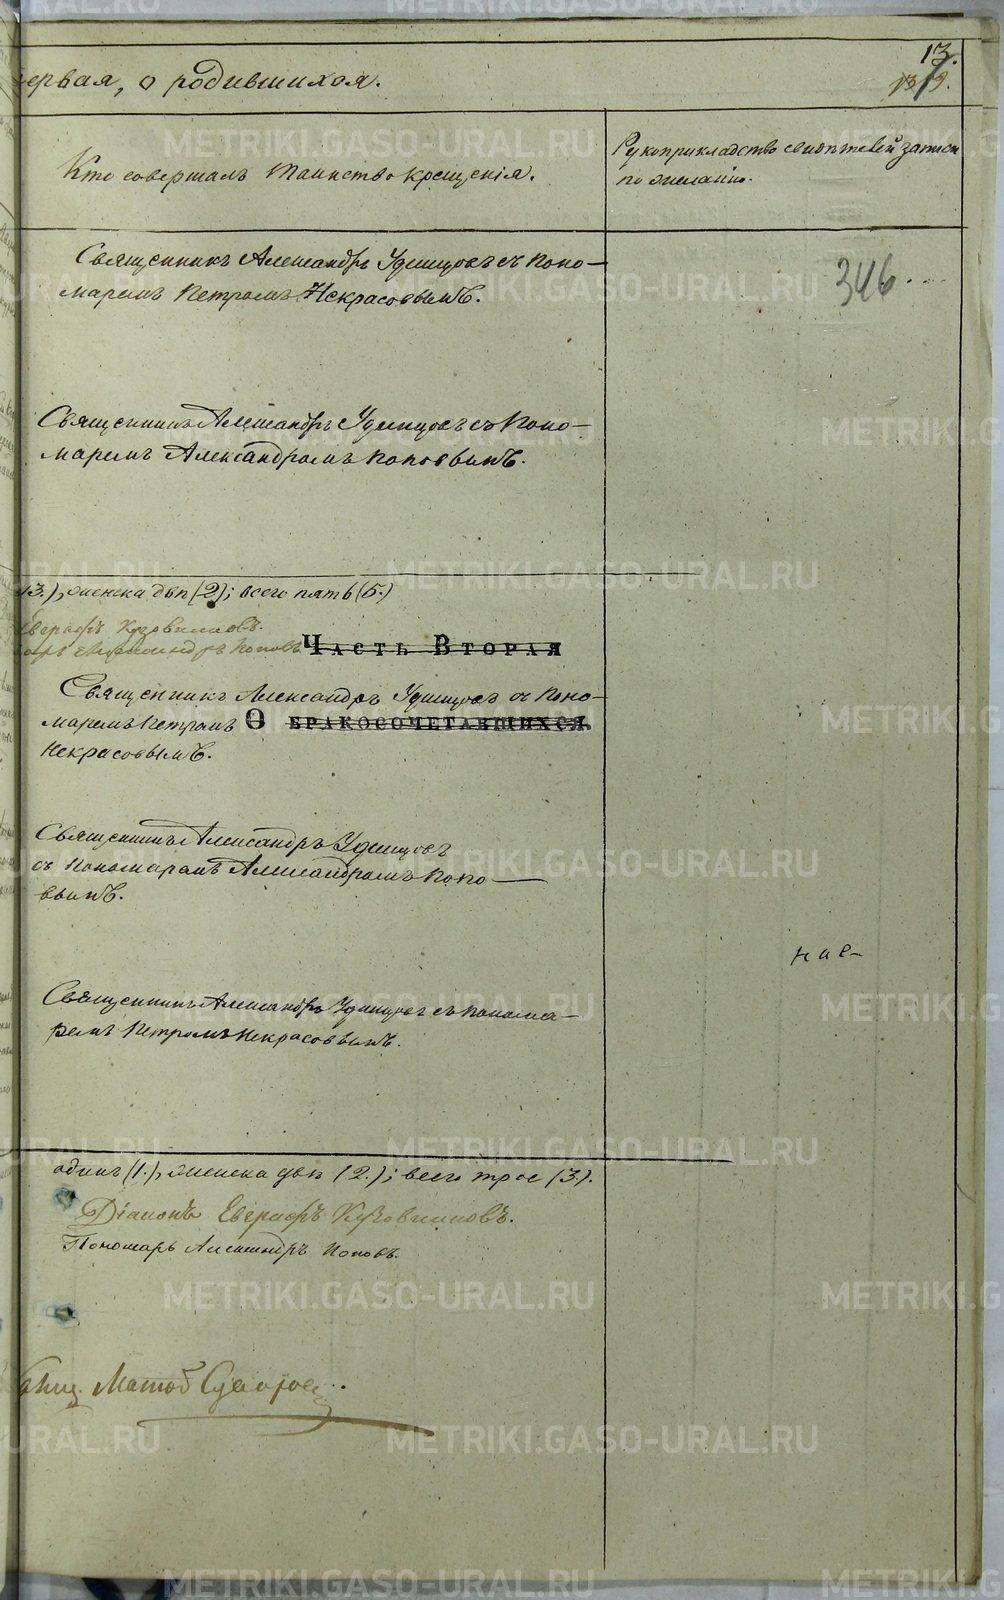 13.
ервая, о родившихся.
Кто совершалъ таинство крещенія.
Рукоприкладство свидѣтелей записи
по желанію.
Священникъ Александръ Удинцовъ съ Поно-
маремъ Петромъ Некрасовымъ.
346
Священникъ Александръ Удинцовъ съ Поно-
маремъ Александромъ Поповымъ.
(3.), женска двѣ (2); всего пять (5.)
Евграфъ Кузовниковъ.
Александръ Поповъ
Часть Вторая
Священникъ Александръ Удинцовъ съ Поно-
маремъ Петромъ
О бракосочетавшихся.
Некрасовымъ.
Священникъ Александръ Удинцовъ
съ Пономаремъ Александромъ Попо-
вымъ.
Священникъ Александръ Удинцовъ съ Понома-
ремъ Петромъ Некрасовымъ.
одинъ (1.), женска двѣ (2.); всего трое (3.).
Діаконъ Евграфъ Кузовниковъ.
Пономарь Александръ Поповъ.
METRIKI.GASO-URAL.RU